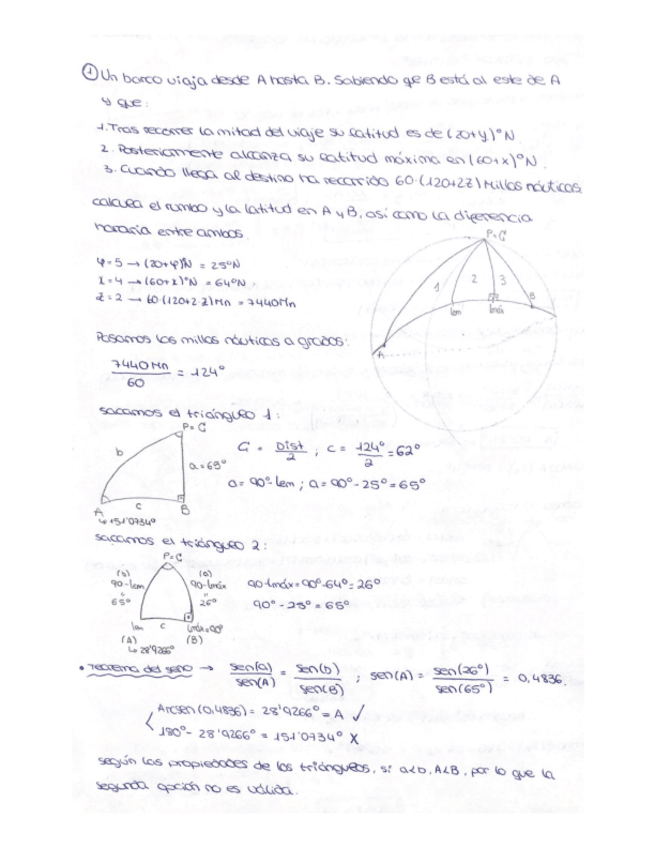 ① Un barco viaja desde A hasta B. Sabiendo qe B está al este de A
y que:
1. Tras recorrer la mitad del viaje su latitud es de (20+y)°N
2. Posteriormente alcanza su latitud máxima en (60+x)°N.
3. Cuando llega al destino ha recorrido 60·(120+2z) Millas náuticas
calcula el rumbo y la latitud en A y B, así como la diferencia
horaria entre ambos.
P=C
1 2 3
A lem lmáx B
y=5 → (20+y)°N = 25°N
x=4 → (60+x)°N = 64°N
z=2 → 60·(120+2·2)Mn = 7440Mn
Pasamos las millas náuticas a grados:
7440Mn / 60 = 124°
sacamos el triángulo 1:
P=C
b
a=65°
A c B
↳ 151'0734°
C = Dist / 2 ; c = 124° / 2 = 62°
a = 90°-lem ; a = 90°-25° = 65°
sacamos el triángulo 2:
P=C
(b) (a)
90-lem 90-lmáx
65° 26°
lem c lmáx=90°
(A) (B)
↳ 28'9266°
90-lmáx=90°-64°=26°
90°-25°=65°
• Teorema del seno → sen(a) / sen(A) = sen(b) / sen(B) ; sen(A) = sen(26°) / sen(65°) = 0,4836.
Arcsen(0,4836) = 28'9266° = A ✓
180° - 28'9266° = 151'0734° X
según las propiedades de los triángulos, si a<b, A<B, por lo que la
segunda opción no es válida.